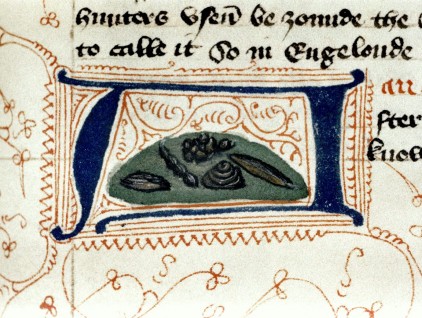 hunters vsen be zonude the
to calle it So in Engelonde
A
an
ster
know